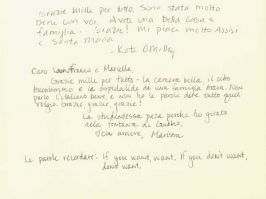 Grazie mille per tutto. Sono stata molto
bene con voi. Avete una bella casa e
famiglia. Grazie! Mi piaci molto Assisi
e Santa Maria
- Kate
Caro Franco e Mariella,
Grazie mille per tutto - la camera bella, il cibo
e la ospitalità di una famiglia brava. Non
parlo l'italiano bene, e non ho le parole dire tutto quel
voglio. Grazie, grazie, grazie!
La studentessa pazza perche ho
alla fontana di Gubbio,
Con amore,
Le parole ricordare: If you want, want. If you don't want,
don't want.